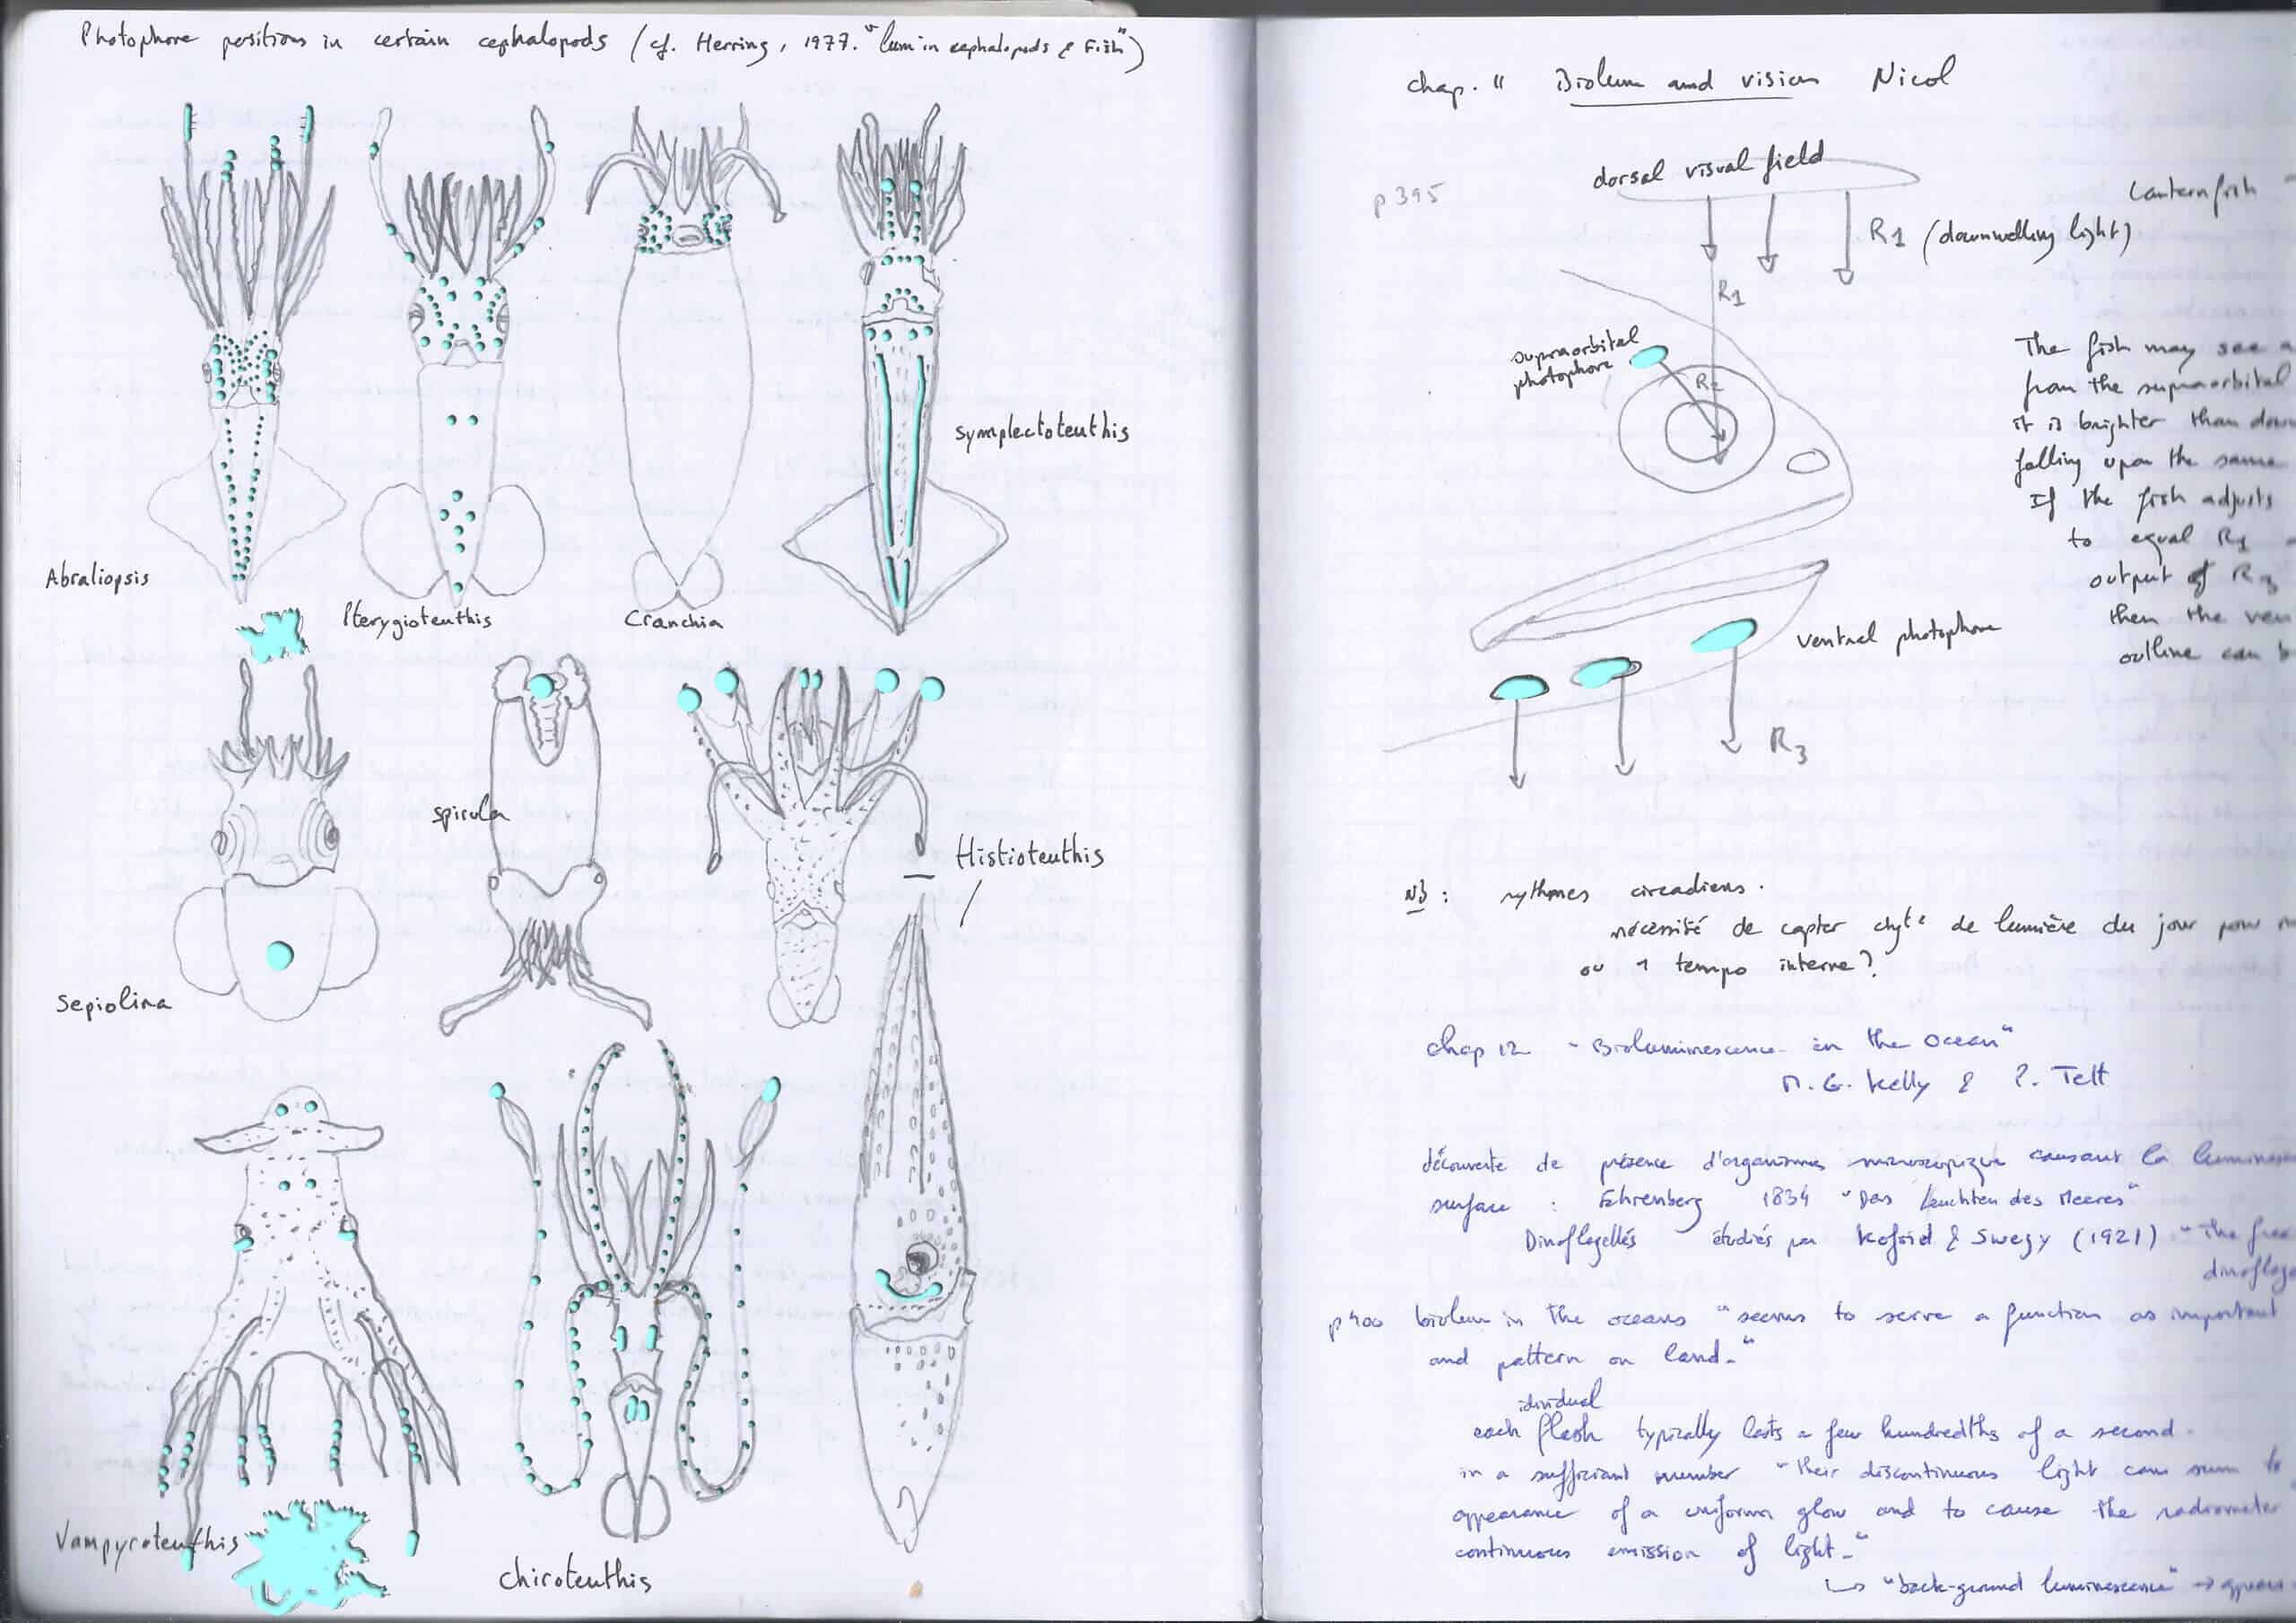 Photophore positions in certain cephalopods (cf. Herring, 1977. "lum in cephalopods & Fish")
Abraliopsis
Pterygioteuthis
Cranchia
Symplectoteuthis
Sepiolina
spirula
Histioteuthis
Vampyroteuthis
chiroteuthis
chap. 11 Biolum and vision Nicol
p395
dorsal visual field
Lanternfish
R1 (downwelling light)
R1
supraorbital
photophore
R2
The fish may see a
from the supraorbital
it is brighter than down
falling upon the same
If the fish adjusts
to equal R1
output of R3
then the ven
outline can b
ventral photophore
R3
NB : rythmes circadiens.
nécessité de capter de lumière du jour pour
ou 1 tempo interne ?
chap 12 "Bioluminescence in the Ocean"
M. G. Kelly & P. Tett
découverte de présence d'organismes microscopique causant la luminesc
surface : Ehrenberg 1834 "Das Leuchten des Meeres"
Dinoflagellés étudiés par Kofoid & Swezy (1921) "the free
dinoflage
p400 biolum in the oceans "seems to serve a function as important
and pattern on land."
idividual
each flash typically lasts a few hundredths of a second.
in a sufficient number "their discontinuous light can sum to
appearance of a uniform glow and to cause the radiometer
continuous emission of light."
↳ "back-ground luminescence" →